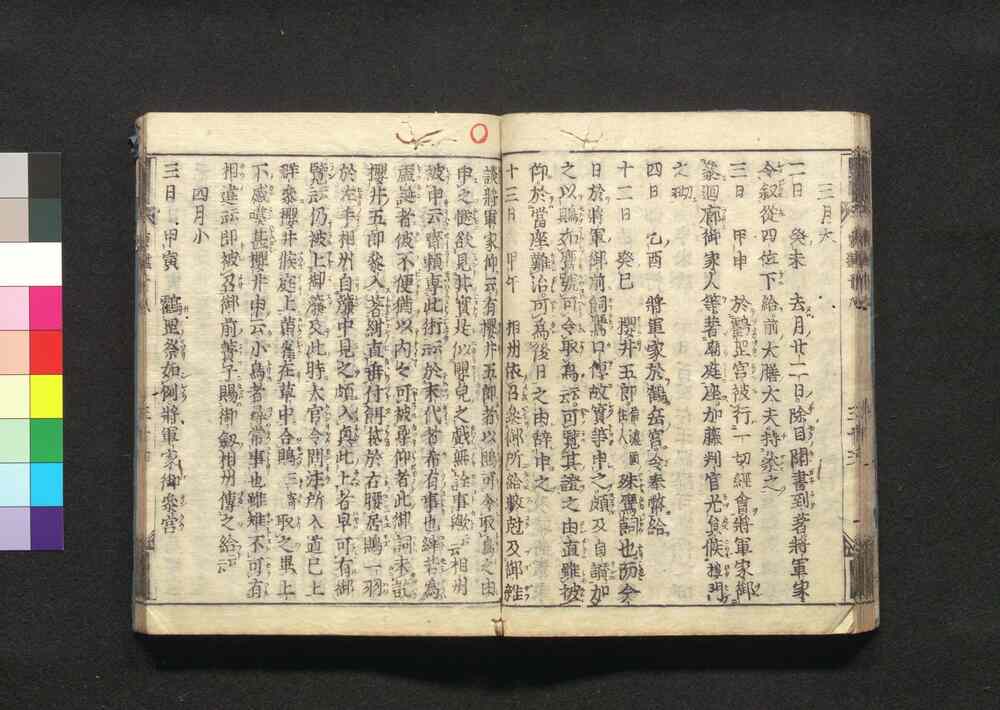 三月大
二日 癸未 去月廿二日除目聞書到著將軍家
令叙從四位下給前大膳大夫持參之
三日 甲申 於鶴岳宮被行一切經會將軍家御
參廻廊御家人等著廟庭座加藤判官光員候樓門
之砌
四日 乙酉 將軍家於鶴岳宮令奉幣給
十二日 癸巳 櫻井五郎 信濃國住人 殊鷹飼也而今
日於將軍御前飼鷹口傳故實等申之頗及自讚加
之以鵙如鷹號可令取鳥云可覽其證之由直雖被
仰於當座難治可為後日之由辭申之
十三日 甲午 相州依召參御所給數尅及御雜
談將軍家仰云有櫻井五郎者以鵙可令取鳥之由
申之慥欲見其實是似嬰兒之戲無詮事歟云相州
被申云齊頼專此術云於末代者希有事也縡若為
虛誕者彼不便猶以内々可被尋仰者此御詞未訖
櫻井五郎參入著紺直垂付餌袋於右腰居鵙一羽
於左手相州自簾中見之頗入興此上者早可有御
覽云仍被上御簾及此時大官令問注所入道已上
群參櫻井候庭上黄雀在草中合鵙三寄取之畢上
下感嘆甚櫻井申云小鳥者尋常事也雖雉不可有
相違云即被召御前簀子賜御劔相州傳之給云
四月小
三日 甲寅 鶴岳祭如例將軍家御參宮